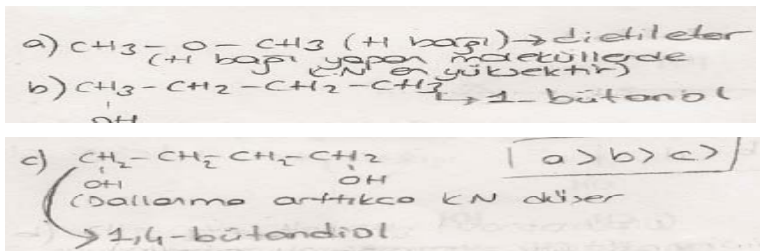 a) CH3 - O - CH3 (H bağı) → dietileter
(H bağı yapan moleküllerde
KN en yüksektir)
b) CH3 - CH2 - CH2 - CH3 → 1-bütanol
OH
c) CH2 - CH2 CH2 - CH2 | a > b > c > |
OH OH
(Dallanma arttıkca KN düşer
→ 1,4-bütandiol